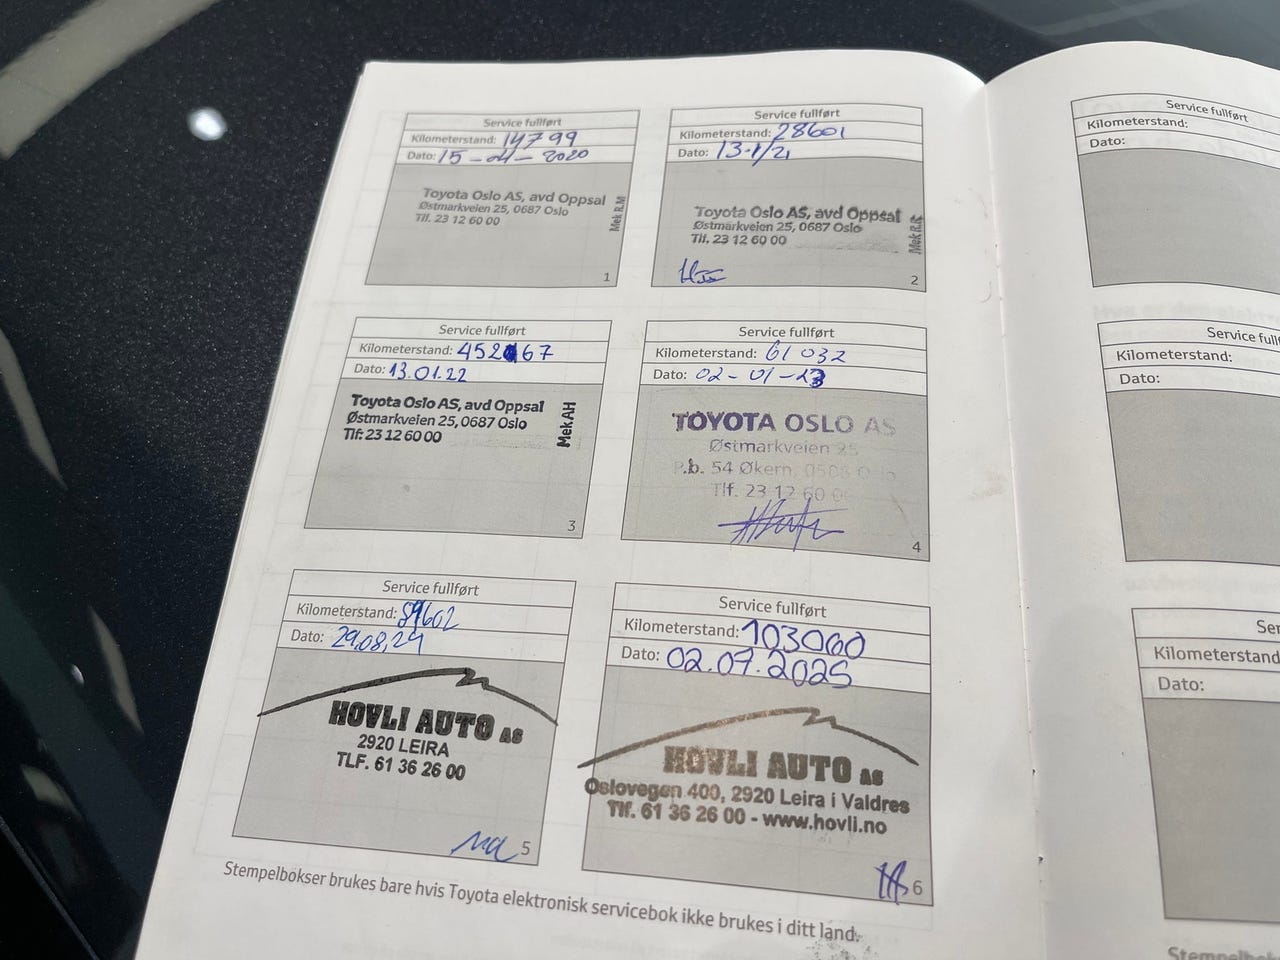 Service fullført
Kilometerstand: 14799
Dato: 15-04-2020
Toyota Oslo AS, avd Oppsal
Østmarkveien 25, 0687 Oslo
Tlf. 23 12 60 00
Mek R.M
1
Service fullført
Kilometerstand: 28601
Dato: 13.1/21
Toyota Oslo AS, avd Oppsal
Østmarkveien 25, 0687 Oslo
Tlf. 23 12 60 00
2
Service fullført
Kilometerstand:
Dato: 13.01.22
Toyota Oslo AS, avd Oppsal
Østmarkveien 25, 0687 Oslo
Tlf: 23 12 60 00
Mek AH
3
Service fullført
Kilometerstand: 61 032
Dato: 02-01-23
TOYOTA OSLO AS
Østmarkveien 25
P.b. 54 Økern, 0508 Oslo
Tlf. 23 12 60 00
4
Service fullført
Kilometerstand:
Dato: 29.08.24
HOVLI AUTO AS
2920 LEIRA
TLF. 61 36 26 00
5
Service fullført
Kilometerstand: 103060
Dato: 02.07.2025
HOVLI AUTO AS
Oslovegen 400, 2920 Leira i Valdres
Tlf. 61 36 26 00 - www.hovli.no
6
Stempelbokser brukes bare hvis Toyota elektronisk servicebok ikke brukes i ditt land.
Service fullført
Kilometerstand:
Dato:
Service full
Kilometerstand:
Dato:
Ser
Kilometerstand
Dato:
Stempelboks